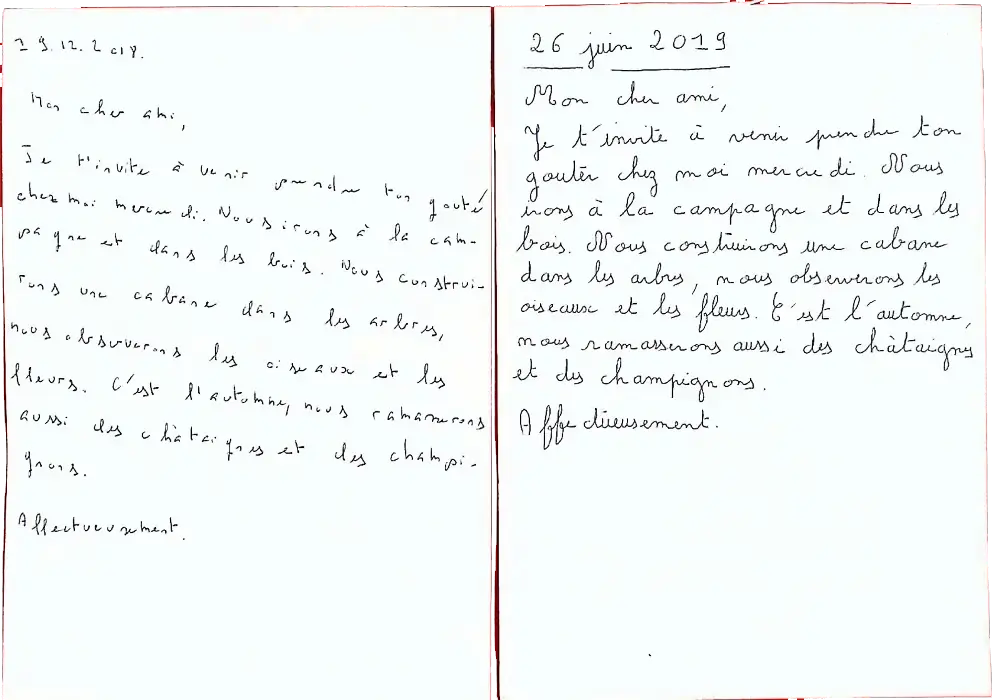 19.12.2018.
Mon cher ami,
Je t'invite à venir prendre ton goûté
chez moi mercredi. Nous irons à la cam-
pagne et dans les bois. Nous construi-
rons une cabane dans les arbres,
nous observerons les oiseaux et les
fleurs. C'est l'automne, nous ramasserons
aussi des châtaignes et des champi-
gnons.
Affectueusement.
26 juin 2019
Mon cher ami,
Je t'invite à venir prendre ton
goûter chez moi mercredi. Nous
irons à la campagne et dans les
bois. Nous construirons une cabane
dans les arbres, nous observerons les
oiseaux et les fleurs. C'est l'automne,
nous ramasserons aussi des châtaignes
et des champignons.
Affectueusement.